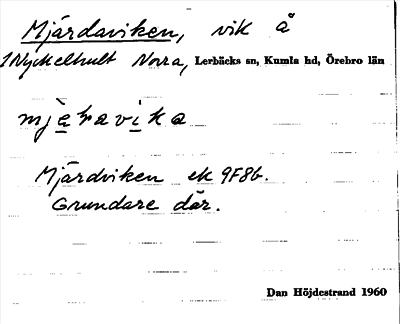 Mjärdaviken, vik å
1 Nyckelhult Norra, Lerbäcks sn, Kumla hd, Örebro län
Mjärdviken ek 9F8b.
Grundare där.
Dan Höjdestrand 1960